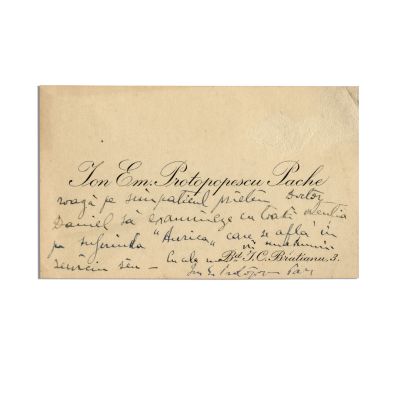 Ion Em. Protopopescu Pache
roagă pe simpaticul prieten Doctor
Daniel să examineze cu toată atenția
pe suferinda "Aurica" care se află în
serviciu său — cu cele mai vii mulțumiri
Bd. I. C. Bratianu, 3.
Ion E. Protopop. Pache